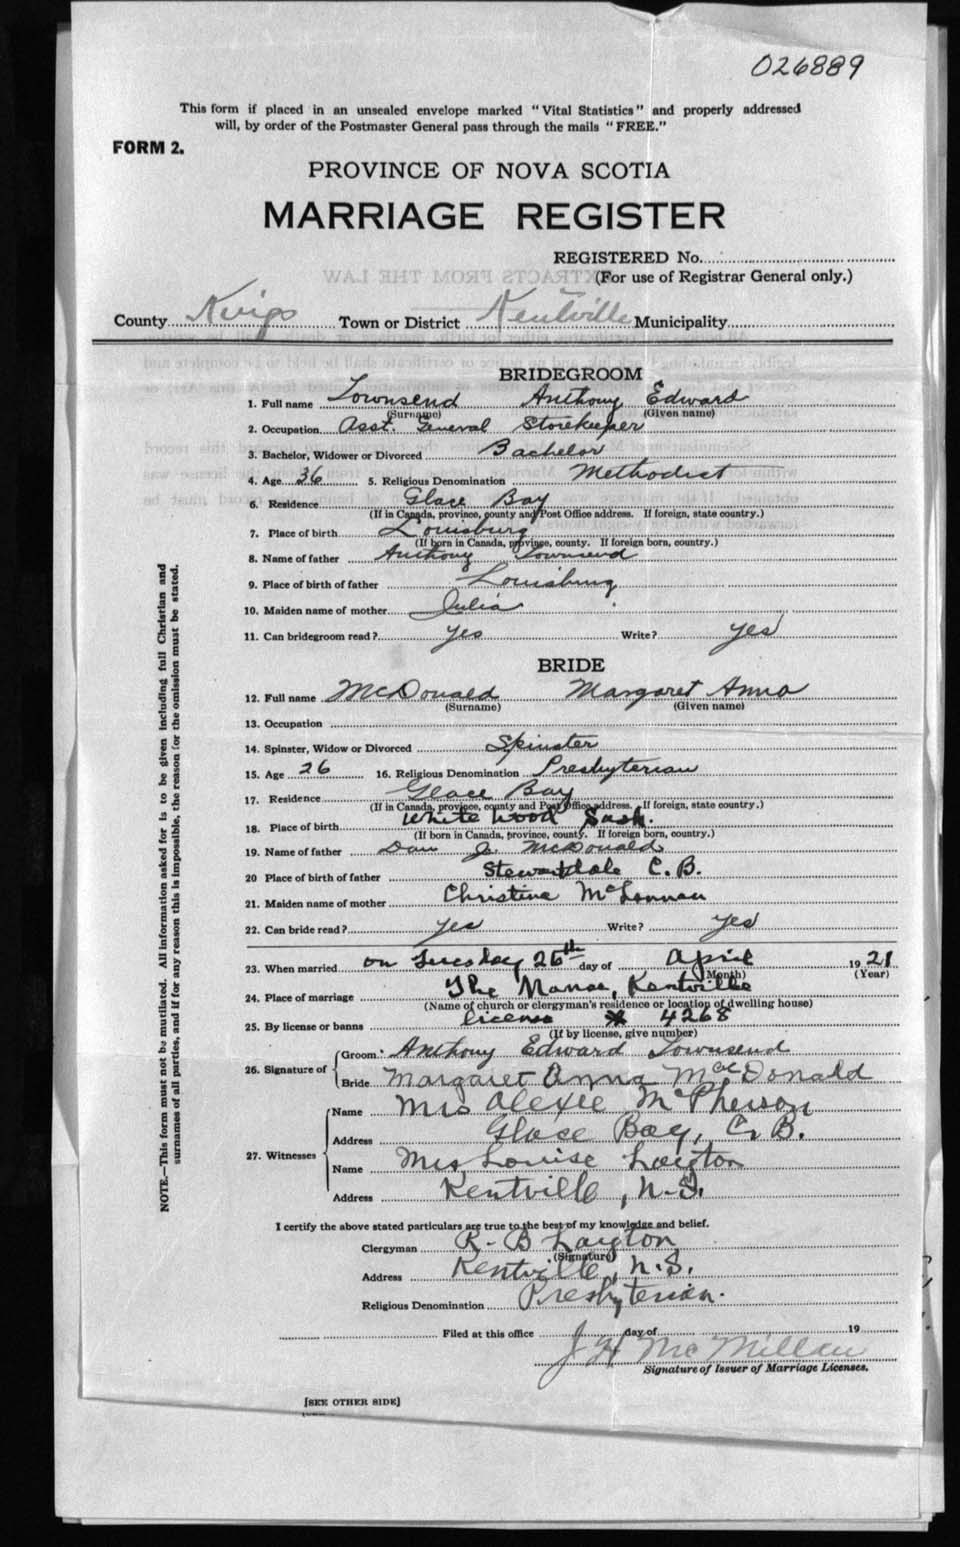 026889
This form if placed in an unsealed envelope marked "Vital Statistics" and properly addressed
will, by order of the Postmaster General pass through the mails "FREE."
FORM 2.
PROVINCE OF NOVA SCOTIA
MARRIAGE REGISTER
REGISTERED No.
(For use of Registrar General only.)
EXTRACTS FROM THE LAW
County Kings Town or District Kentville Municipality
BRIDEGROOM
1. Full name Townsend Anthony Edward
(Surname) (Given name)
2. Occupation Asst. General Storekeeper
3. Bachelor, Widower or Divorced Bachelor
4. Age 36 5. Religious Denomination Methodist
6. Residence Glace Bay
(If in Canada, province, county and Post Office address. If foreign, state country.)
7. Place of birth Louisburg
(If born in Canada, province, county. If foreign born, country.)
8. Name of father Anthony Townsend
9. Place of birth of father Louisburg
10. Maiden name of mother Julia
11. Can bridegroom read? yes Write? yes
BRIDE
12. Full name McDonald Margaret Anna
(Surname) (Given name)
13. Occupation
14. Spinster, Widow or Divorced Spinster
15. Age 26 16. Religious Denomination Presbyterian
17. Residence Glace Bay
(If in Canada, province, county and Post Office address. If foreign, state country.)
18. Place of birth White Wood Sask.
(If born in Canada, province, county. If foreign born, country.)
19. Name of father Dan J. McDonald
20 Place of birth of father Stewartdale C.B.
21. Maiden name of mother Christina McLennan
22. Can bride read? yes Write? yes
23. When married on Tuesday 26th day of April 1921
(Month) (Year)
24. Place of marriage The Manse, Kentville
(Name of church or clergyman's residence or location of dwelling house)
25. By license or banns license * 4268
(If by license, give number)
26. Signature of Groom Anthony Edward Townsend
Bride Margaret Anna MacDonald
27. Witnesses Name Mrs Alexie McPherson
Address Glace Bay, C.B.
Name Mrs Louise Layton
Address Kentville, N.S.
I certify the above stated particulars are true to the best of my knowledge and belief.
Clergyman R. B Layton
(Signature)
Address Kentville, N.S.
Religious Denomination Presbyterian.
Filed at this office day of 19
J H McMillan
Signature of Issuer of Marriage Licenses.
[SEE OTHER SIDE]
NOTE.—This form must not be mutilated. All information asked for is to be given including full Christian and
surnames of all parties, and if for any reason this is impossible, the reason for the omission must be stated.